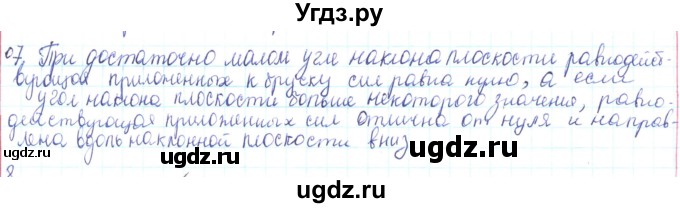 Угдз.ру
07 При достаточно малом угле наклона плоскости равнодейст-
вующая приложенных к бруску сил равна нулю, а если
угол наклона плоскости больше некоторого значения, равно-
действующая приложенных сил отлична от нуля и направ-
лена вдоль наклонной плоскости вниз
8
©ugdz.ru ugdz.ru ©ugdz.ru
ugdz.ru